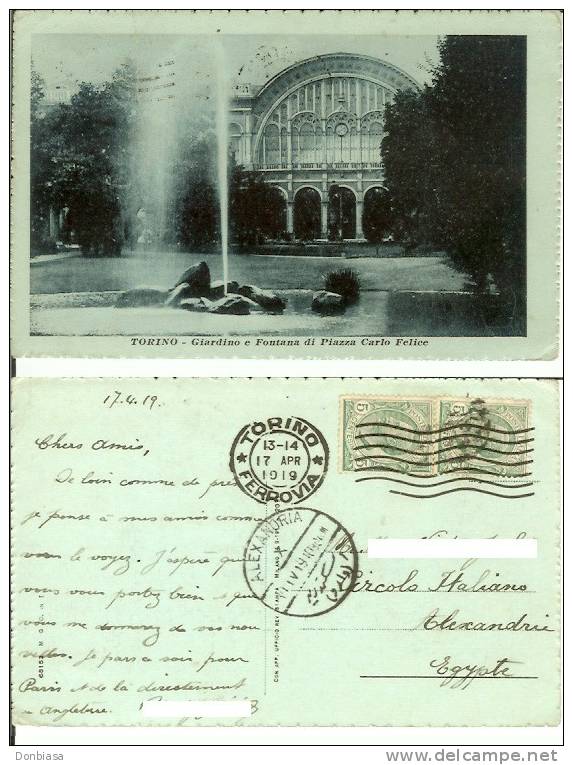 TORINO - Giardino e Fontana di Piazza Carlo Felice
17.4.19.
Chers Amis,
De loin comme de près
je pense à mes amis comme
vous le voyez. J'espère que
vous vous portez bien & que
vous me donnerez de vos nou
velles. Je pars ce soir pour
Paris & de là directement
en Angleterre.
TORINO
13-14
17 APR
1919
FERROVIA
5
5
5
ALEXANDRIA
Circolo Italiano
Alexandrie
Egypte
Donbiasa
www.delcampe.net